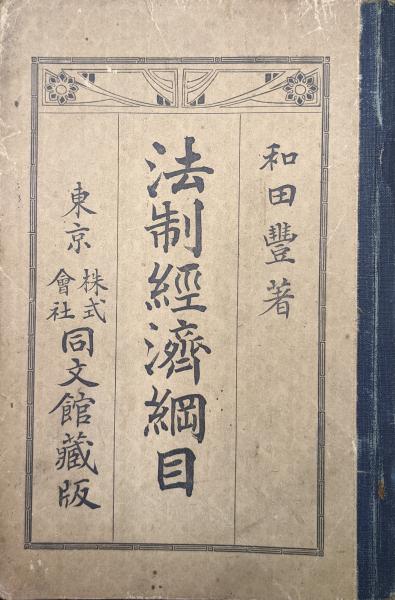 和田豐著
法制經濟綱目
東京 株式會社 同文館藏版